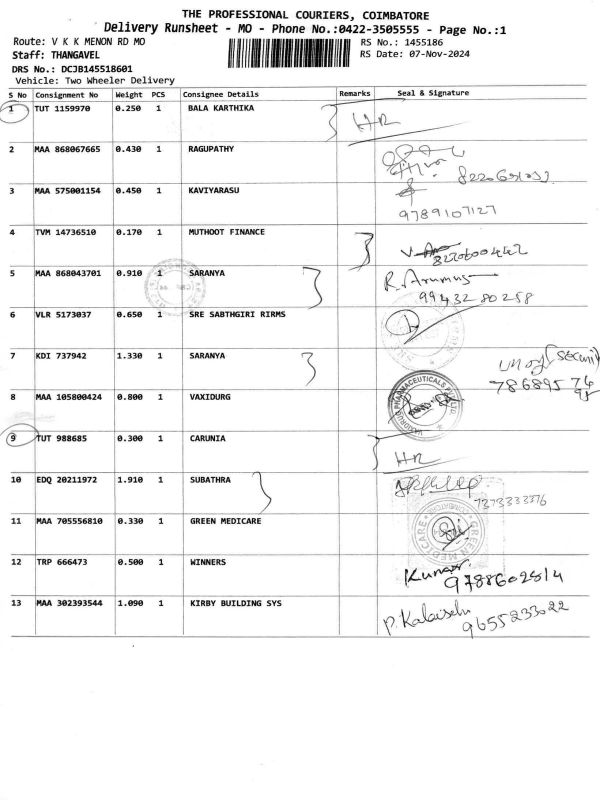 THE PROFESSIONAL COURIERS, COIMBATORE
Delivery Runsheet - MO - Phone No.:0422-3505555 - Page No.:1
Route: V K K MENON RD MO RS No.: 1455186
Staff: THANGAVEL RS Date: 07-Nov-2024
DRS No.: DCJB145518601
Vehicle: Two Wheeler Delivery
S No Consignment No Weight PCS Consignee Details Remarks Seal & Signature
1 TUT 1159970 0.250 1 BALA KARTHIKA
HR
2 MAA 868067665 0.430 1 RAGUPATHY
3 MAA 575001154 0.450 1 KAVIYARASU
9789107127
4 TVM 14736510 0.170 1 MUTHOOT FINANCE
5 MAA 868043701 0.910 1 SARANYA R. Arumug
9943280258
6 VLR 5173037 0.650 1 SRE SABTHGIRI RIRMS
7 KDI 737942 1.330 1 SARANYA
8 MAA 105800424 0.800 1 VAXIDURG
VAXIDRUG PHARMACEUTICALS PVT LTD.
9 TUT 988685 0.300 1 CARUNIA
HR
10 EDQ 20211972 1.910 1 SUBATHRA
7373333376
11 MAA 705556810 0.330 1 GREEN MEDICARE
GREEN MEDICARE
12 TRP 666473 0.500 1 WINNERS
Kumar
9788602814
13 MAA 302393544 1.090 1 KIRBY BUILDING SYS
P. Kalaiselvi
9655233022